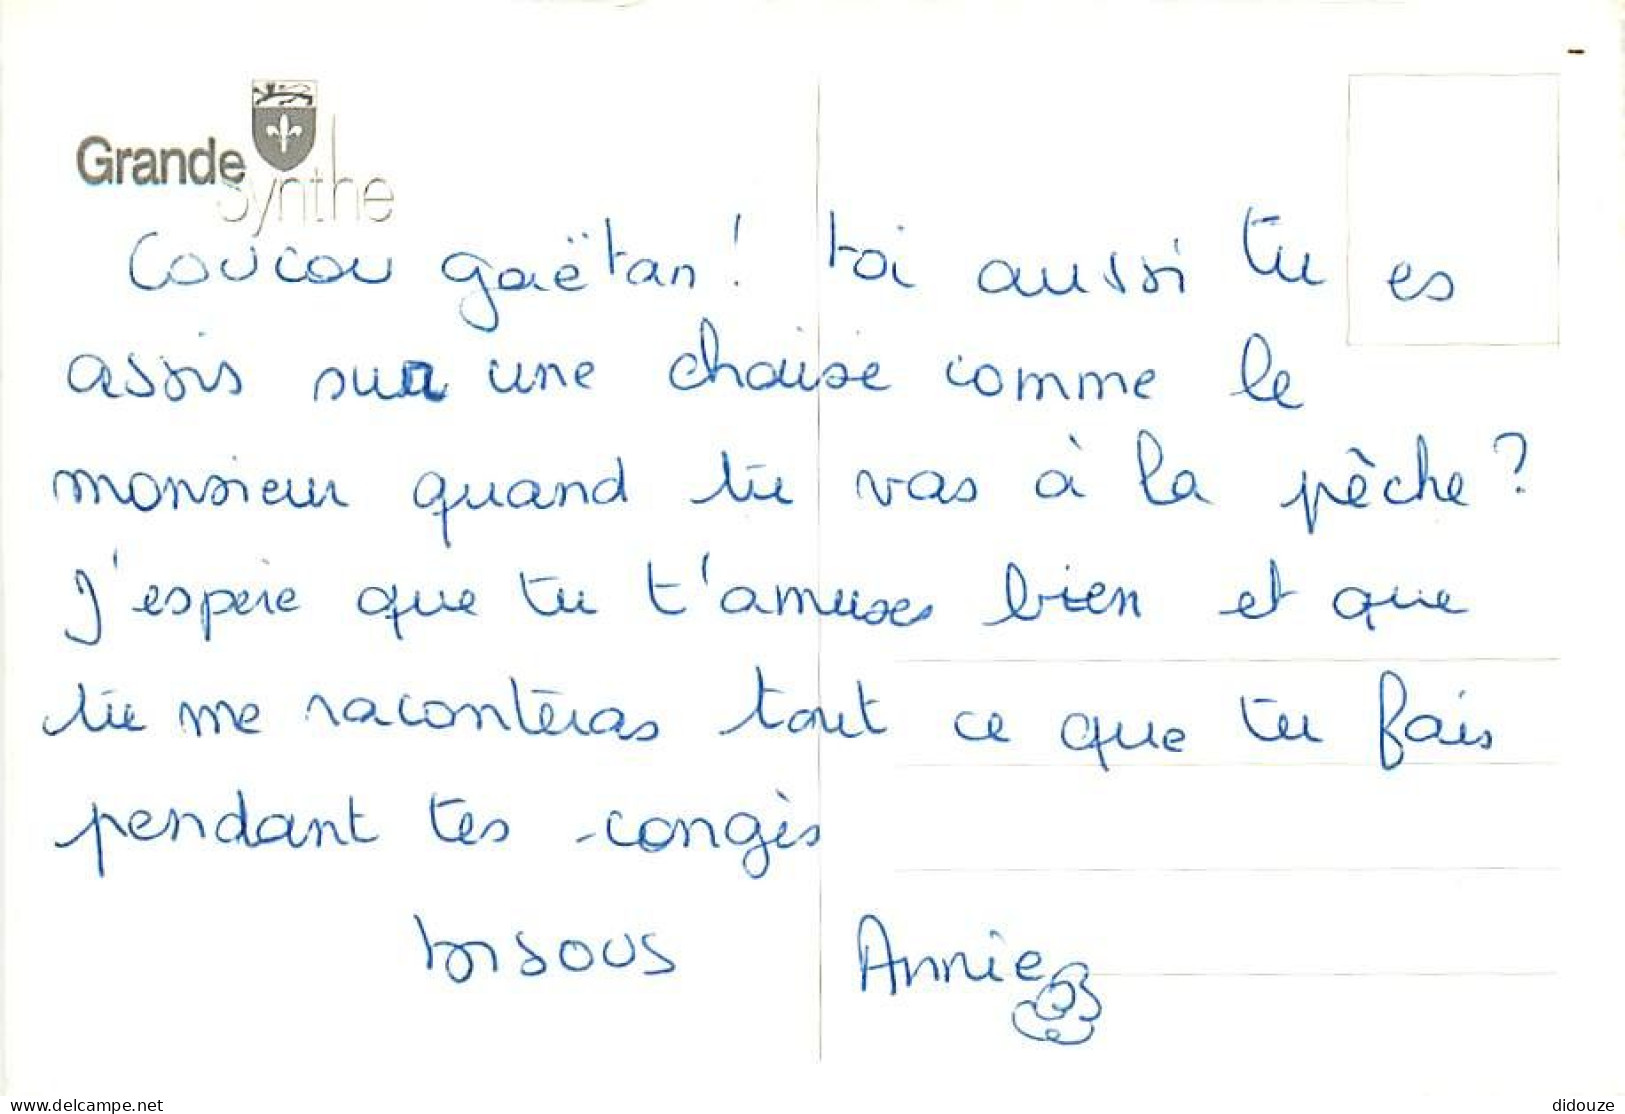 Grande
Synthe
Coucou Gaëtan! toi aussi tu es
assis sur une chaise comme le
monsieur quand tu vas à la pêche?
J'espère que tu t'amuses bien et que
tu me raconteras tout ce que tu fais
pendant tes congès
bisous Annie
www.delcampe.net
didouze